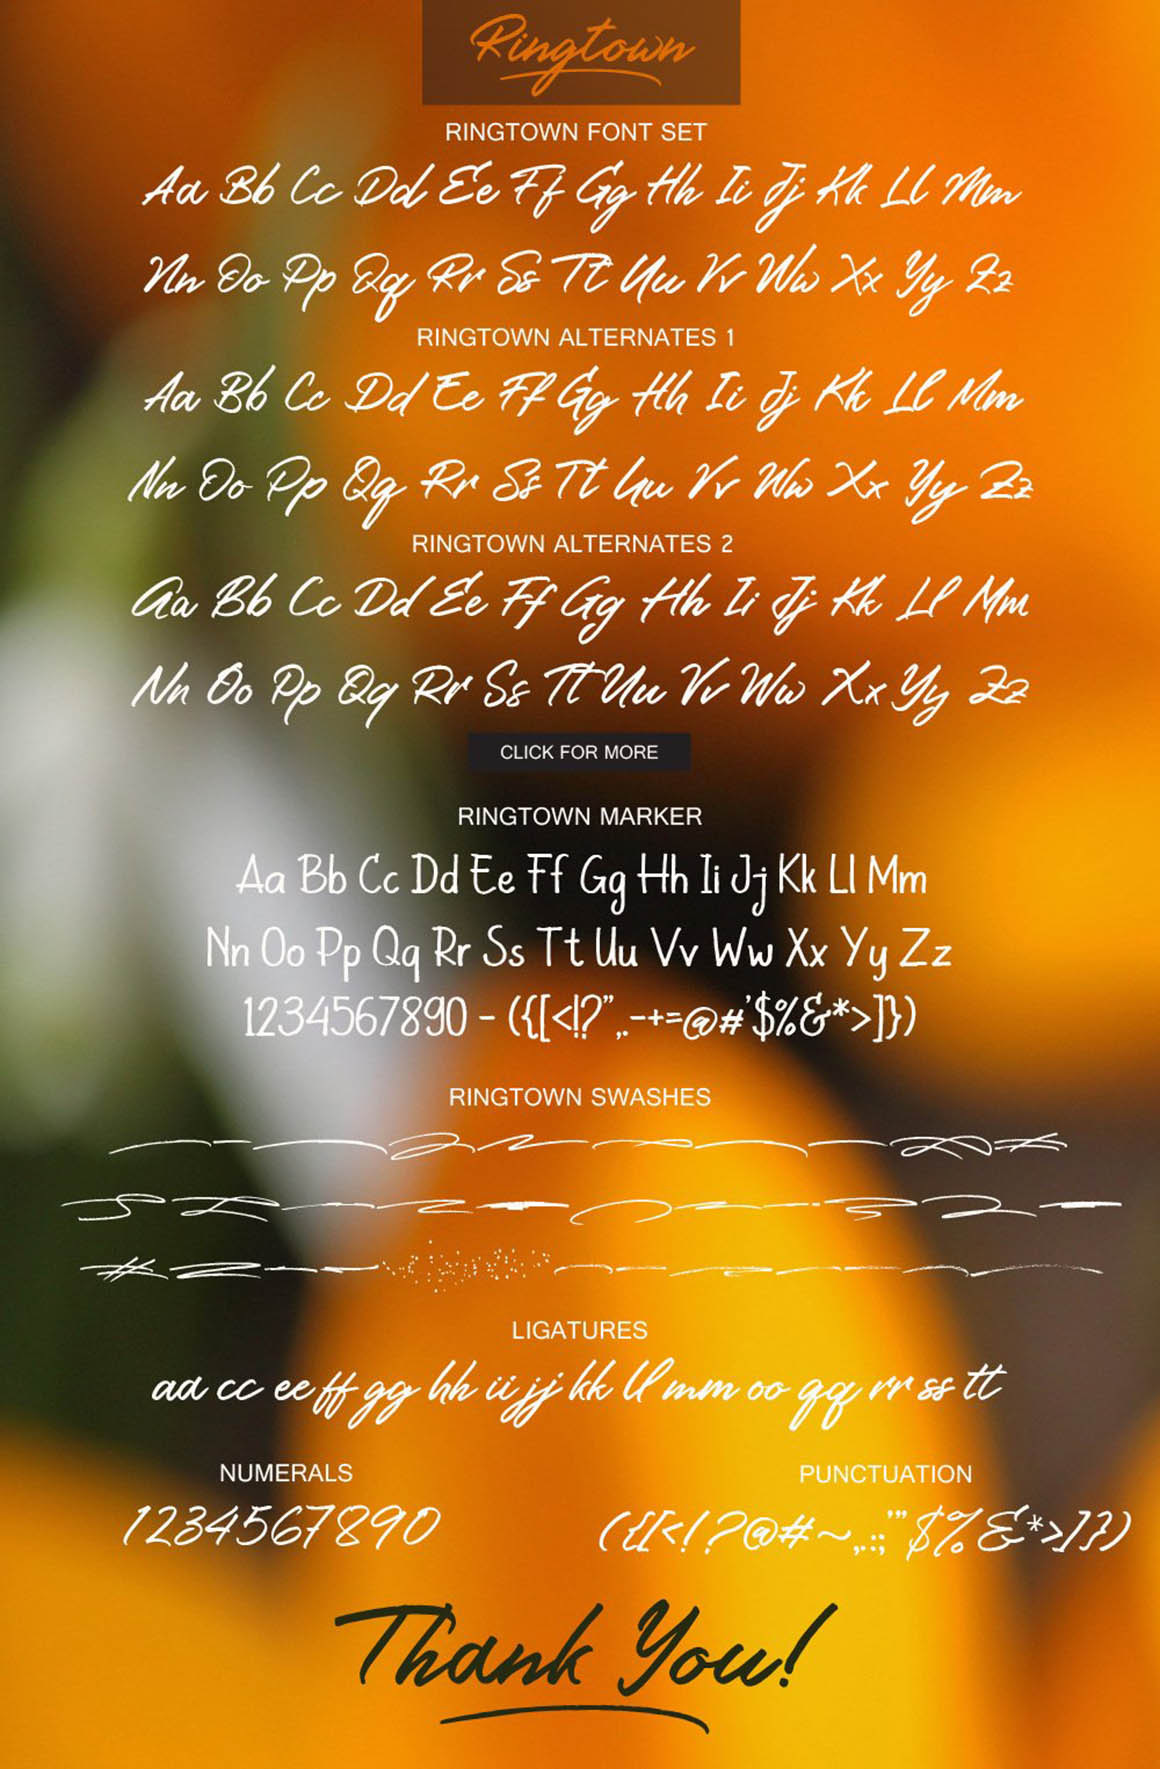 Ringtown
RINGTOWN FONT SET
Aa Bb Cc Dd Ee Ff Gg Hh Ii Jj Kk Ll Mm
Nn Oo Pp Qq Rr Ss Tt Uu Vv Ww Xx Yy Zz
RINGTOWN ALTERNATES 1
Aa Bb Cc Dd Ee Ff Gg Hh Ii Jj Kk Ll Mm
Nn Oo Pp Qq Rr Ss Tt Uu Vv Ww Xx Yy Zz
RINGTOWN ALTERNATES 2
Aa Bb Cc Dd Ee Ff Gg Hh Ii Jj Kk Ll Mm
Nn Oo Pp Qq Rr Ss Tt Uu Vv Ww Xx Yy Zz
CLICK FOR MORE
RINGTOWN MARKER
Aa Bb Cc Dd Ee Ff Gg Hh Ii Jj Kk Ll Mm
Nn Oo Pp Qq Rr Ss Tt Uu Vv Ww Xx Yy Zz
1234567890 - ({[<!?",.-+=@#'$%&*>]})
RINGTOWN SWASHES
LIGATURES
aa cc ee ff gg hh ii jj kk ll mm oo qq rr ss tt
NUMERALS
1234567890
PUNCTUATION
({[<!?@#~,.:;'"$%&*>]})
Thank You!